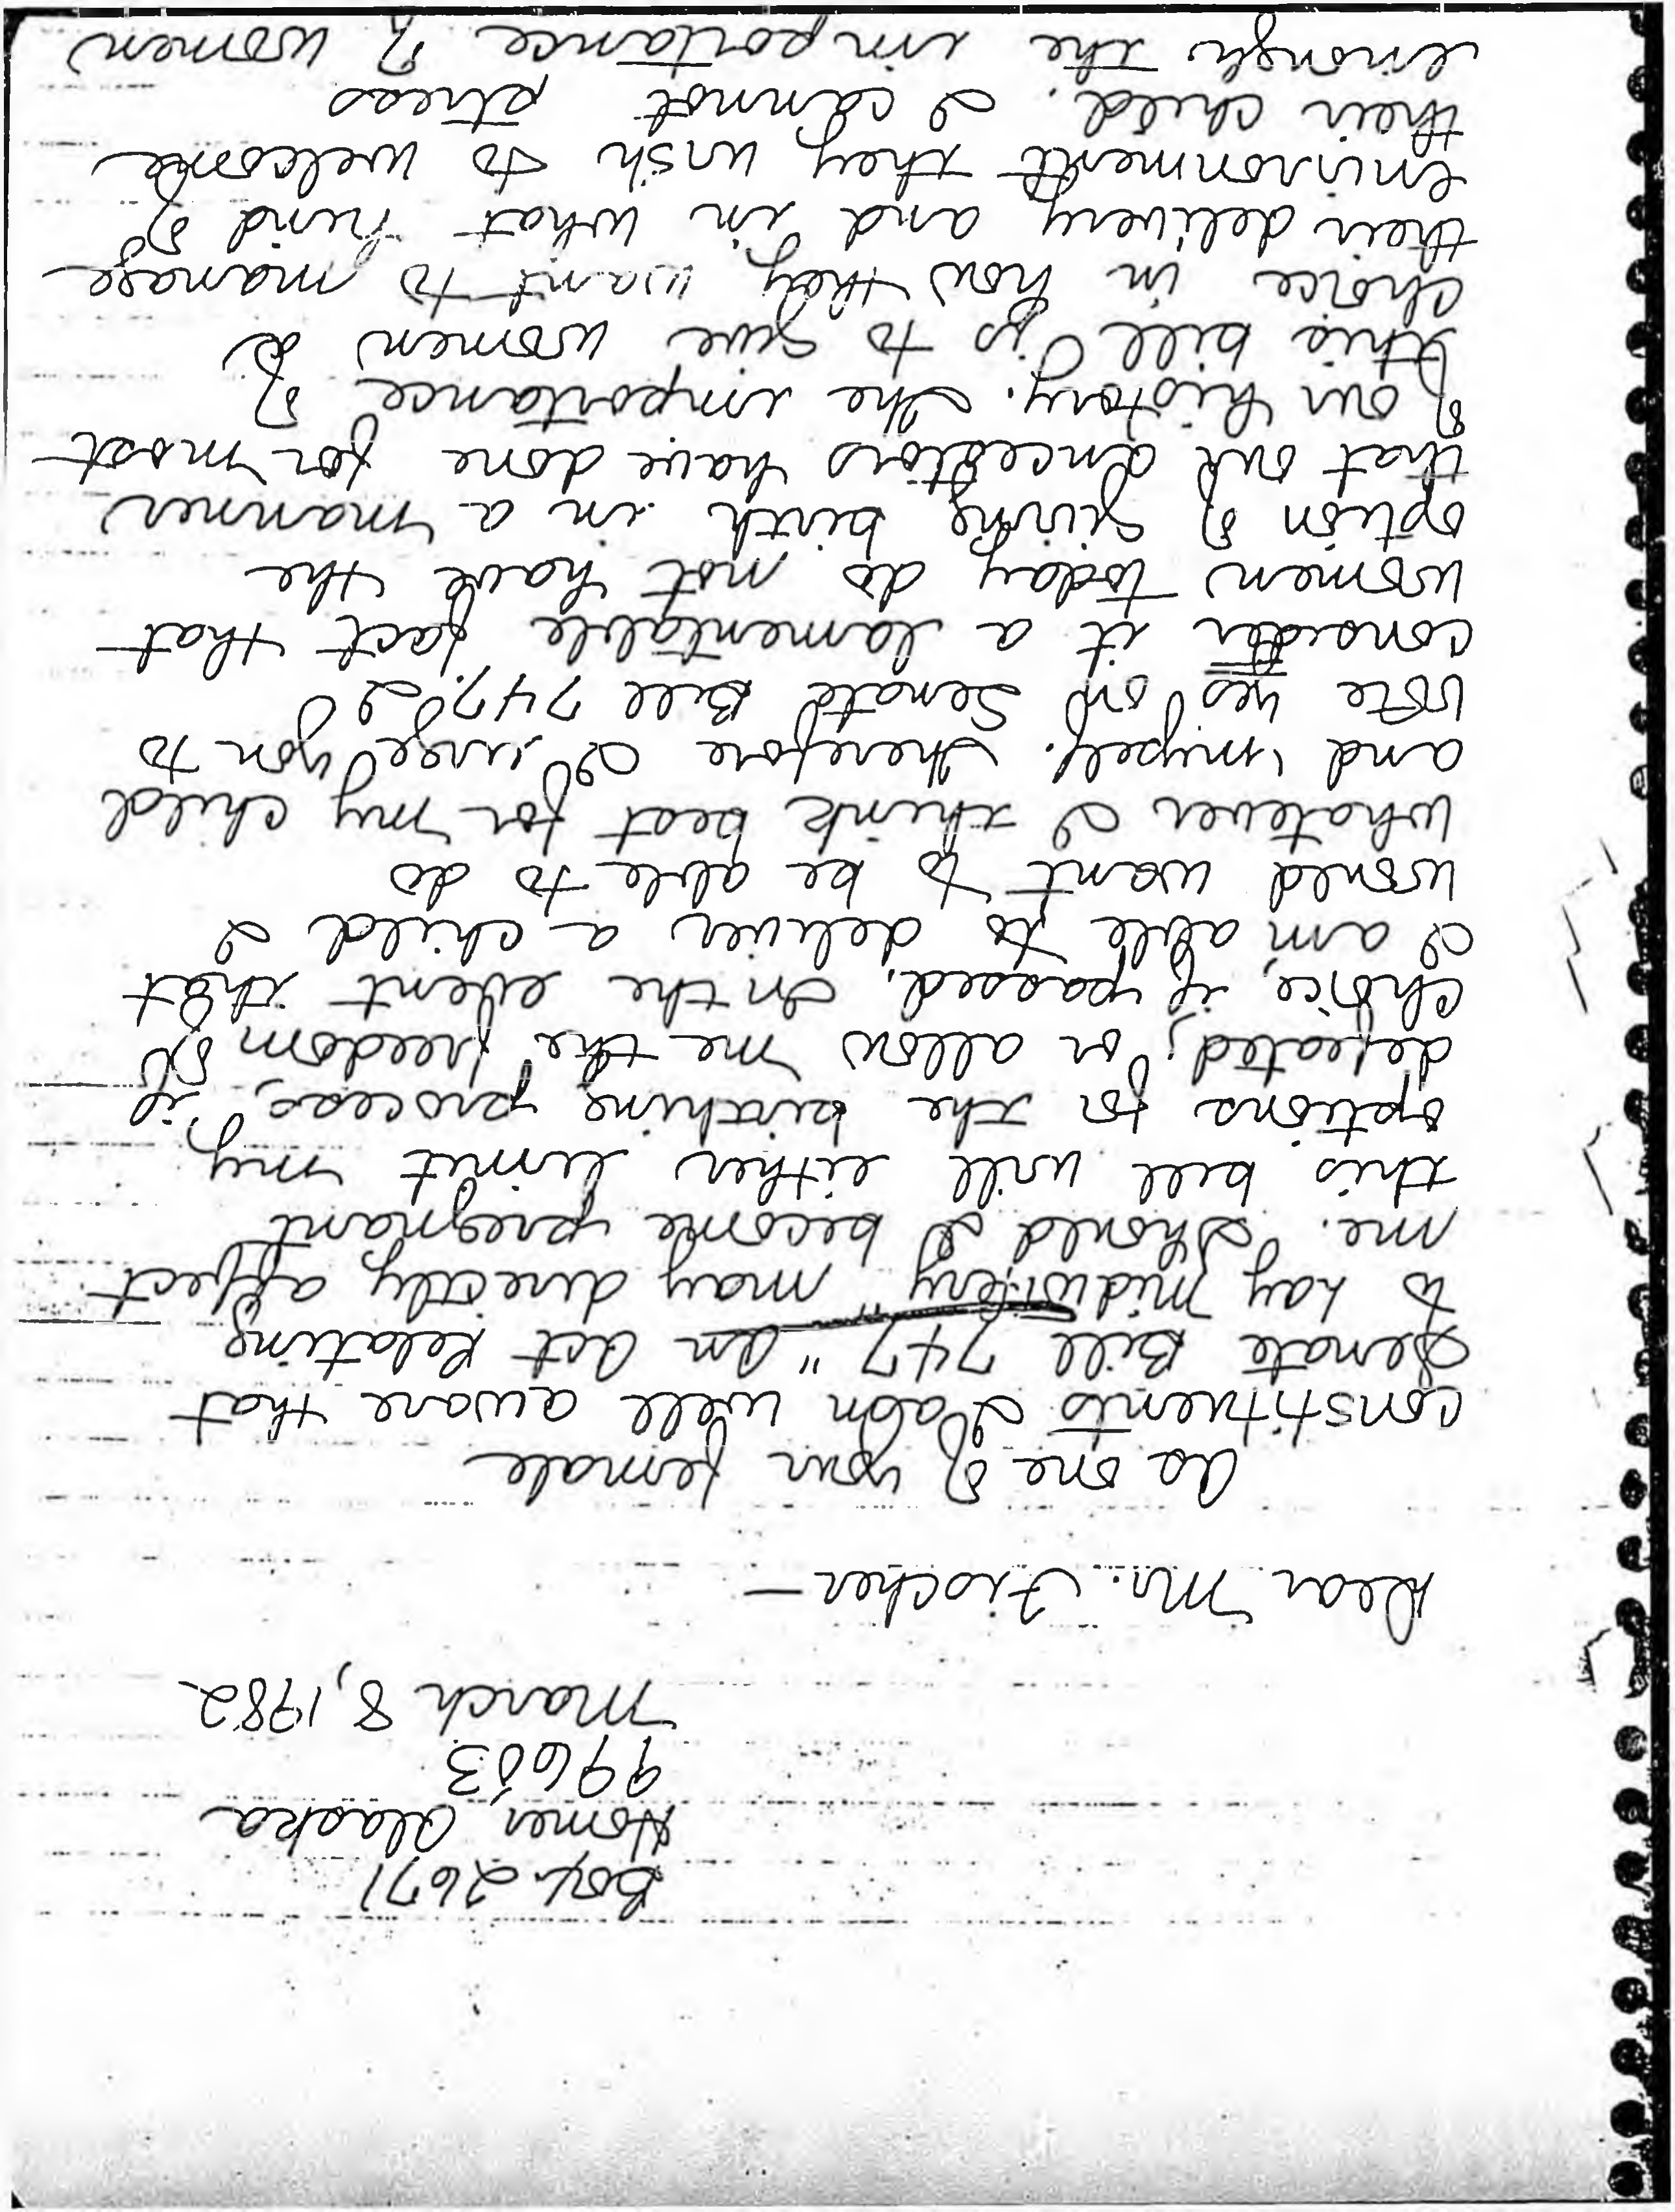 Box 2671
Homer, Alaska
99603
March 8, 1982
Dear Mr. Fischer—
As one of your female
constituents I am well aware that
Senate Bill 747 "An Act Relating
to Lay Midwifery" may directly affect
me. Should I become pregnant
this bill will either limit my
options for the birthing process, if
defeated; or allow me the freedom of
choice, if passed. In the event that
I am able to deliver a child I
would want to be able to do
whatever I think best for my child
and myself. Therefore I urge you to
vote yes on Senate Bill 747. I
consider it a lamentable fact that
women today do not have the
option of giving birth in a manner
that our ancestors have done for most
of our history. The importance of
this bill is to give women a
choice in how they want to manage
their delivery and in what kind of
environment they wish to welcome
their child. I cannot stress
enough the importance of women